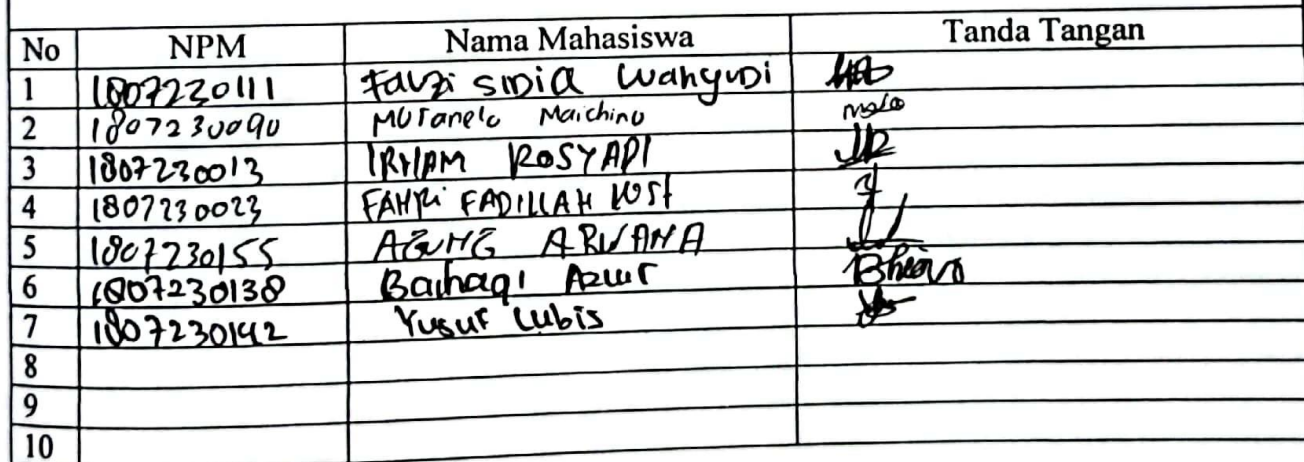 No NPM Nama Mahasiswa Tanda Tangan
1 1807230111 Fauzi SIDIQ WahyuDi
2 1807230090 MUranelo Maichino
3 1807230013 IRHAM ROSYADI
4 1807230023 FAHRi FADILLAH
5 1807230155 AGUNG ARVANA
6 1807230138 Baihaqi Azwr
7 1807230142 Yusuf Lubis
8
9
10